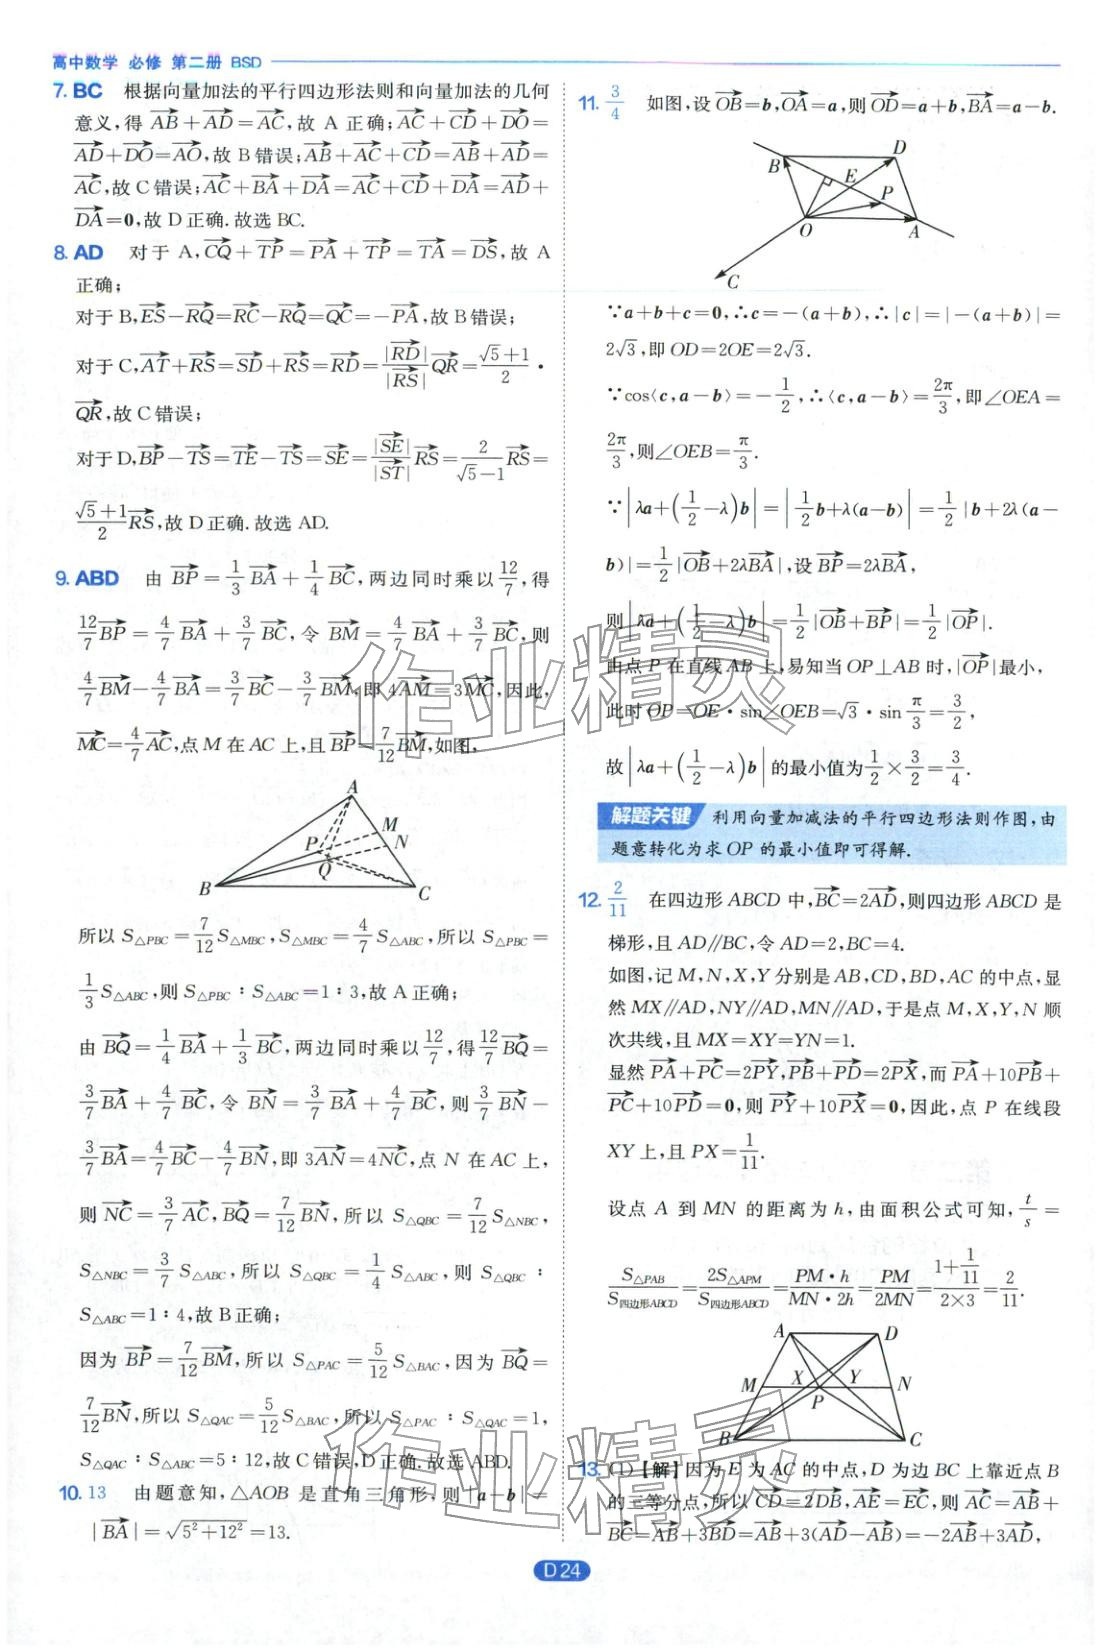 高中数学 必修 第二册 BSD
7. BC 根据向量加法的平行四边形法则和向量加法的几何
意义,得 $\overrightarrow{AB}+\overrightarrow{AD}=\overrightarrow{AC}$,故 A 正确;$\overrightarrow{AC}+\overrightarrow{CD}+\overrightarrow{DO}=$
$\overrightarrow{AD}+\overrightarrow{DO}=\overrightarrow{AO}$,故 B 错误;$\overrightarrow{AB}+\overrightarrow{AC}+\overrightarrow{CD}=\overrightarrow{AB}+\overrightarrow{AD}=$
$\overrightarrow{AC}$,故 C 错误;$\overrightarrow{AC}+\overrightarrow{BA}+\overrightarrow{DA}=\overrightarrow{AC}+\overrightarrow{CD}+\overrightarrow{DA}=\overrightarrow{AD}+$
$\overrightarrow{DA}=\mathbf{0}$,故 D 正确.故选 BC.
8. AD 对于 A,$\overrightarrow{CQ}+\overrightarrow{TP}=\overrightarrow{PA}+\overrightarrow{TP}=\overrightarrow{TA}=\overrightarrow{DS}$,故 A
正确;
对于 B,$\overrightarrow{ES}-\overrightarrow{RQ}=\overrightarrow{RC}-\overrightarrow{RQ}=\overrightarrow{QC}=-\overrightarrow{PA}$,故 B 错误;
对于 C,$\overrightarrow{AT}+\overrightarrow{RS}=\overrightarrow{SD}+\overrightarrow{RS}=\overrightarrow{RD}=\frac{|\overrightarrow{RD}|}{|\overrightarrow{RS}|}\overrightarrow{QR}=\frac{\sqrt{5}+1}{2}\cdot$
$\overrightarrow{QR}$,故 C 错误;
对于 D,$\overrightarrow{BP}-\overrightarrow{TS}=\overrightarrow{TE}-\overrightarrow{TS}=\overrightarrow{SE}=\frac{|\overrightarrow{SE}|}{|\overrightarrow{ST}|}\overrightarrow{RS}=\frac{2}{\sqrt{5}-1}\overrightarrow{RS}=$
$\frac{\sqrt{5}+1}{2}\overrightarrow{RS}$,故 D 正确.故选 AD.
9. ABD 由 $\overrightarrow{BP}=\frac{1}{3}\overrightarrow{BA}+\frac{1}{4}\overrightarrow{BC}$,两边同时乘以 $\frac{12}{7}$,得
$\frac{12}{7}\overrightarrow{BP}=\frac{4}{7}\overrightarrow{BA}+\frac{3}{7}\overrightarrow{BC}$,令 $\overrightarrow{BM}=\frac{4}{7}\overrightarrow{BA}+\frac{3}{7}\overrightarrow{BC}$,则
$\frac{4}{7}\overrightarrow{BM}-\frac{4}{7}\overrightarrow{BA}=\frac{3}{7}\overrightarrow{BC}-\frac{3}{7}\overrightarrow{BM}$,即 $4\overrightarrow{AM}=3\overrightarrow{MC}$,因此,
$\overrightarrow{MC}=\frac{4}{7}\overrightarrow{AC}$,点 M 在 AC 上,且 $\overrightarrow{BP}=\frac{7}{12}\overrightarrow{BM}$,如图,
A
M
P
N
Q
B
C
所以 $S_{\triangle PBC}=\frac{7}{12}S_{\triangle MBC}$,$S_{\triangle MBC}=\frac{4}{7}S_{\triangle ABC}$,所以 $S_{\triangle PBC}=$
$\frac{1}{3}S_{\triangle ABC}$,则 $S_{\triangle PBC}:S_{\triangle ABC}=1:3$,故 A 正确;
由 $\overrightarrow{BQ}=\frac{1}{4}\overrightarrow{BA}+\frac{1}{3}\overrightarrow{BC}$,两边同时乘以 $\frac{12}{7}$,得 $\frac{12}{7}\overrightarrow{BQ}=$
$\frac{3}{7}\overrightarrow{BA}+\frac{4}{7}\overrightarrow{BC}$,令 $\overrightarrow{BN}=\frac{3}{7}\overrightarrow{BA}+\frac{4}{7}\overrightarrow{BC}$,则 $\frac{3}{7}\overrightarrow{BN}-$
$\frac{3}{7}\overrightarrow{BA}=\frac{4}{7}\overrightarrow{BC}-\frac{4}{7}\overrightarrow{BN}$,即 $3\overrightarrow{AN}=4\overrightarrow{NC}$,点 N 在 AC 上,
则 $\overrightarrow{NC}=\frac{3}{7}\overrightarrow{AC}$,$\overrightarrow{BQ}=\frac{7}{12}\overrightarrow{BN}$,所以 $S_{\triangle QBC}=\frac{7}{12}S_{\triangle NBC}$,
$S_{\triangle NBC}=\frac{3}{7}S_{\triangle ABC}$,所以 $S_{\triangle QBC}=\frac{1}{4}S_{\triangle ABC}$,则 $S_{\triangle QBC}:$
$S_{\triangle ABC}=1:4$,故 B 正确;
因为 $\overrightarrow{BP}=\frac{7}{12}\overrightarrow{BM}$,所以 $S_{\triangle PAC}=\frac{5}{12}S_{\triangle BAC}$,因为 $\overrightarrow{BQ}=$
$\frac{7}{12}\overrightarrow{BN}$,所以 $S_{\triangle QAC}=\frac{5}{12}S_{\triangle BAC}$,所以 $S_{\triangle PAC}:S_{\triangle QAC}=1$,
$S_{\triangle QAC}:S_{\triangle ABC}=5:12$,故 C 错误,D 正确.故选 ABD.
10. 13 由题意知,△AOB 是直角三角形,则 $|a-b|=$
$|\overrightarrow{BA}|=\sqrt{5^2+12^2}=13$.
11. $\frac{3}{4}$ 如图,设 $\overrightarrow{OB}=b$,$\overrightarrow{OA}=a$,则 $\overrightarrow{OD}=a+b$,$\overrightarrow{BA}=a-b$.
B
D
E
P
O
A
C
∵$a+b+c=\mathbf{0}$,∴$c=-(a+b)$,∴$|c|=|-(a+b)|=$
$2\sqrt{3}$,即 $OD=2OE=2\sqrt{3}$.
∵$\cos\langle c,a-b\rangle=-\frac{1}{2}$,∴$\langle c,a-b\rangle=\frac{2\pi}{3}$,即∠OEA=
$\frac{2\pi}{3}$,则∠OEB=$\frac{\pi}{3}$.
∵$\left|\lambda a+\left(\frac{1}{2}-\lambda\right)b\right|=\left|\frac{1}{2}b+\lambda(a-b)\right|=\frac{1}{2}|b+2\lambda(a-$
$b)|=\frac{1}{2}|\overrightarrow{OB}+2\lambda\overrightarrow{BA}|$,设 $\overrightarrow{BP}=2\lambda\overrightarrow{BA}$,
则 $\left|\lambda a+\left(\frac{1}{2}-\lambda\right)b\right|=\frac{1}{2}|\overrightarrow{OB}+\overrightarrow{BP}|=\frac{1}{2}|\overrightarrow{OP}|$.
由点 P 在直线 AB 上,易知当 OP⊥AB 时,$|\overrightarrow{OP}|$最小,
此时 $OP=OE\cdot\sin\angle OEB=\sqrt{3}\cdot\sin\frac{\pi}{3}=\frac{3}{2}$,
故 $\left|\lambda a+\left(\frac{1}{2}-\lambda\right)b\right|$ 的最小值为 $\frac{1}{2}\times\frac{3}{2}=\frac{3}{4}$.
解题关键 利用向量加减法的平行四边形法则作图,由
题意转化为求 OP 的最小值即可得解.
12. $\frac{2}{11}$ 在四边形 ABCD 中,$\overrightarrow{BC}=2\overrightarrow{AD}$,则四边形 ABCD 是
梯形,且 AD//BC,令 AD=2,BC=4.
如图,记 M,N,X,Y 分别是 AB,CD,BD,AC 的中点,显
然 MX//AD,NY//AD,MN//AD,于是点 M,X,Y,N 顺
次共线,且 MX=XY=YN=1.
显然 $\overrightarrow{PA}+\overrightarrow{PC}=2\overrightarrow{PY}$,$\overrightarrow{PB}+\overrightarrow{PD}=2\overrightarrow{PX}$,而 $\overrightarrow{PA}+10\overrightarrow{PB}+$
$\overrightarrow{PC}+10\overrightarrow{PD}=\mathbf{0}$,则 $\overrightarrow{PY}+10\overrightarrow{PX}=\mathbf{0}$,因此,点 P 在线段
XY 上,且 $PX=\frac{1}{11}$.
设点 A 到 MN 的距离为 h,由面积公式可知,$\frac{t}{s}=$
$\frac{S_{\triangle PAB}}{S_{四边形ABCD}}=\frac{2S_{\triangle APM}}{S_{四边形ABCD}}=\frac{PM\cdot h}{MN\cdot 2h}=\frac{PM}{2MN}=\frac{1+\frac{1}{11}}{2\times 3}=\frac{2}{11}$.
A
D
M
X
Y
N
P
B
C
13. (1)【解】因为 E 为 AC 的中点,D 为边 BC 上靠近点 B
的三等分点,所以 $\overrightarrow{CD}=2\overrightarrow{DB}$,$\overrightarrow{AE}=\overrightarrow{EC}$,则 $\overrightarrow{AC}=\overrightarrow{AB}+$
$\overrightarrow{BC}=\overrightarrow{AB}+3\overrightarrow{BD}=\overrightarrow{AB}+3(\overrightarrow{AD}-\overrightarrow{AB})=-2\overrightarrow{AB}+3\overrightarrow{AD}$,
D 24
作业精灵
作业精灵